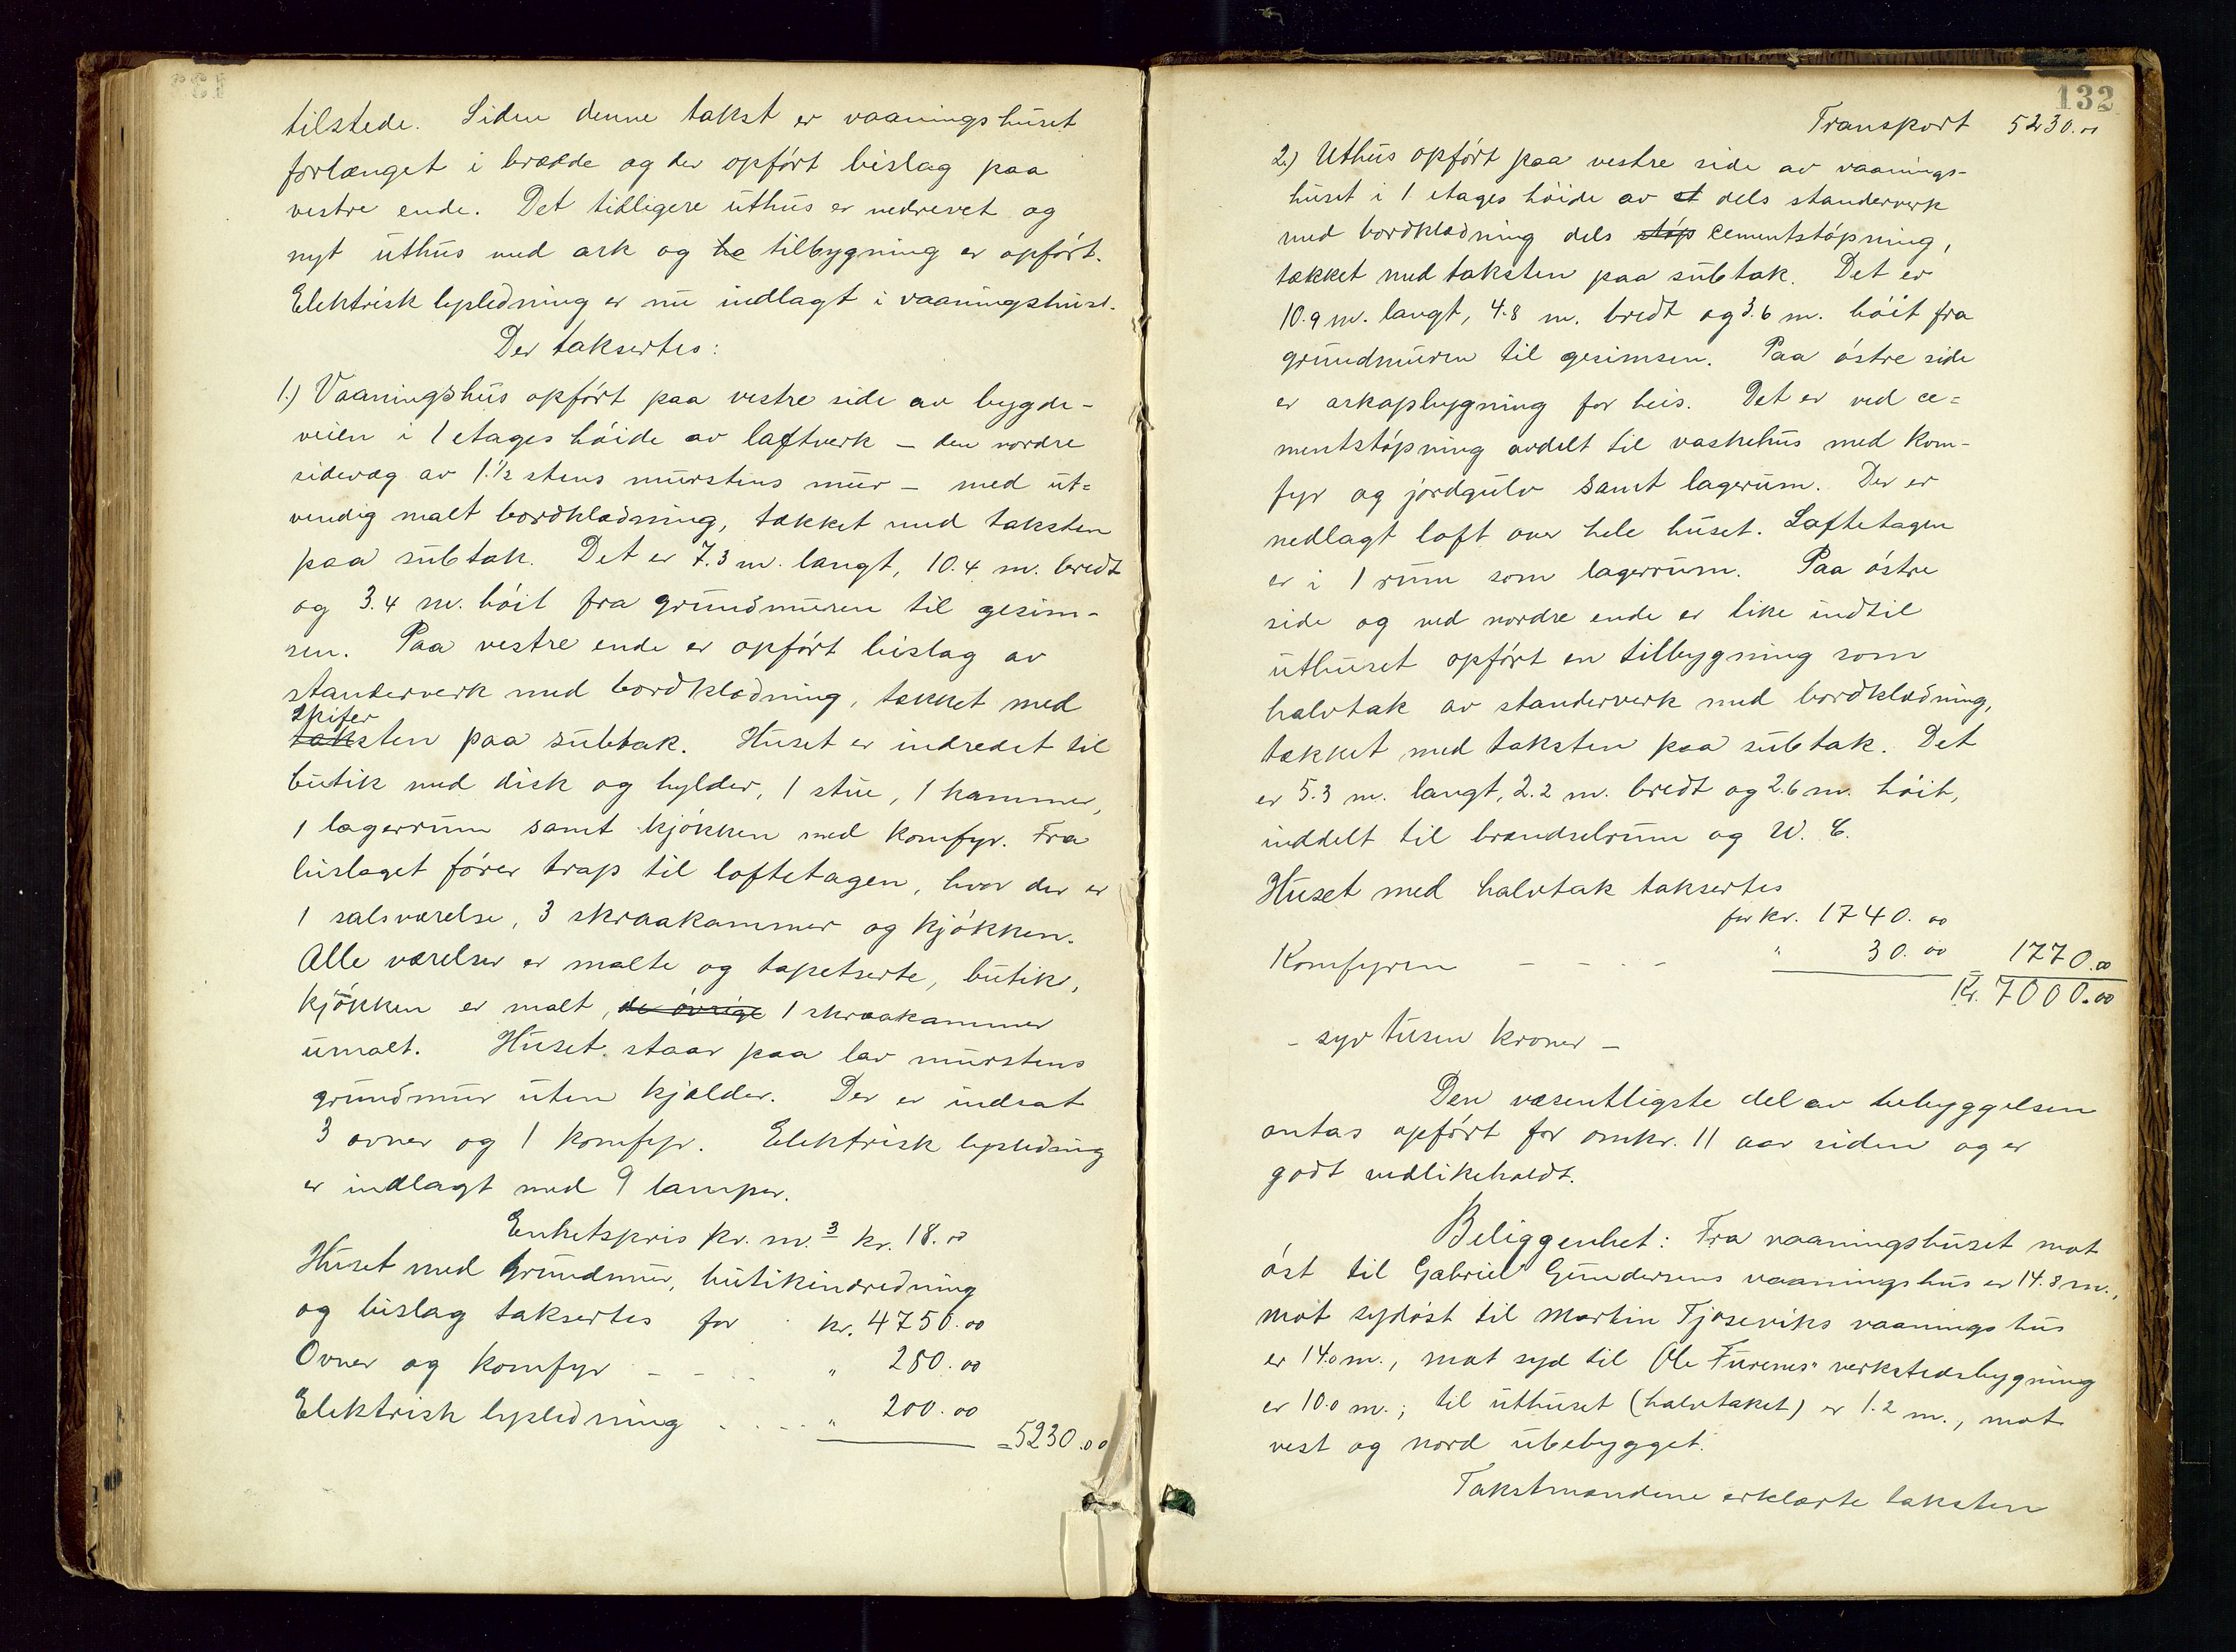 tilstede. Siden denne takst er vaaningshuset
forlænget i brædde og der opført bislag paa
vestre ende. Det tidligere uthus er nedrevet og
nyt uthus med ark og ha tilbygning er opført.
Elektrisk lysledning er nu indlagt i vaaningshuset.
Der taksertes:
1.) Vaaningshus opført paa vestre side av bygde-
veien i 1 etages høide av laftverk – den nordre
sidevæg av 1.½ stens murstens mur – med ut=
vendig malt bordklædning, tækket med taksten
paa subtak. Det er 7.3 m. langt, 10.4 m. bredt
og 3.4 m. høit fra grundmuren til gesim-
sen. Paa vestre ende er opført bislag av
standerverk med bordklædning, tækket med
Skifer
taksten paa subtak. Huset er indredet til
butik med disk og hylder, 1 stue, 1 kammer,
1 lagerrum samt kjøkken med komfyr. Fra
bislaget fører trap til loftetagen, hvor der er
1 salsværelse, 3 skraakammer og kjøkken.
Alle værelser er malte og tapetserte, butik,
kjøkken er malt, de øvrige 1 skraakammer
umalt. Huset staar paa lav murstens
grundmur uten kjælder. Der er indsat
3 ovner og 1 komfyr. Elektrisk lysledning
er indlagt med 9 lamper.
Enhetspris pr. m.3 kr. 18.00
Huset med grundmur, butikindredning
og bislag taksertes for kr. 4750.00
Ovner og komfyr - - - - " 280.00
Elektrisk lysledning - - - - " 200.00
=5230.00
132
Transport 5230.00
2.) Uthus opført paa vestre side av vaanings-
huset i 1 etages høide av st dels standerverk
med bordklædning dels støp cementstøpning,
tækket med taksten paa subtak. Det er
10.9 m. langt, 4.8 m. bredt og 3.6 m. høit fra
grundmuren til gesimsen. Paa østre side
er arkopbygning for heis. Det er ved ce=
mentstøpning avdelt til vaskehus med kom-
fyr og jordgulv samt lagerum. Der er
nedlagt loft over hele huset. Loftetagen
er i 1 rum som lagerrum. Paa østre
side og ved nordre ende er like indtil
uthuset opført en tilbygning som
halvtak av standerverk med bordklædning,
tækket med taksten paa subtak. Det
er 5.3 m. langt, 2.2 m. bredt og 2.6 m. høit,
inddelt til brændselrum og W. C.
Huset med halvtak taksertes
for kr. 1740.00
Komfyren - - - - " 30.00 1770.00
Kr. 7000.00
- syv tusen kroner -
Den væsentligste del av bebyggelsen
antas opført for omkr. 11 aar siden og er
godt vedlikeholdt.
Beliggenhet: Fra vaaningshuset mot
øst til Gabriel Gundersens vaaningshus er 14.8 m.,
mot sydøst til Martin Tjoseviks vaaningshus
er 14.0 m., mot syd til Ole Furenes' verkstedsbygning
er 10.0 m.; til uthuset (halvtaket) er 1.2 m., mot
vest og nord ubebygget.
Takstmændene erklærte taksten